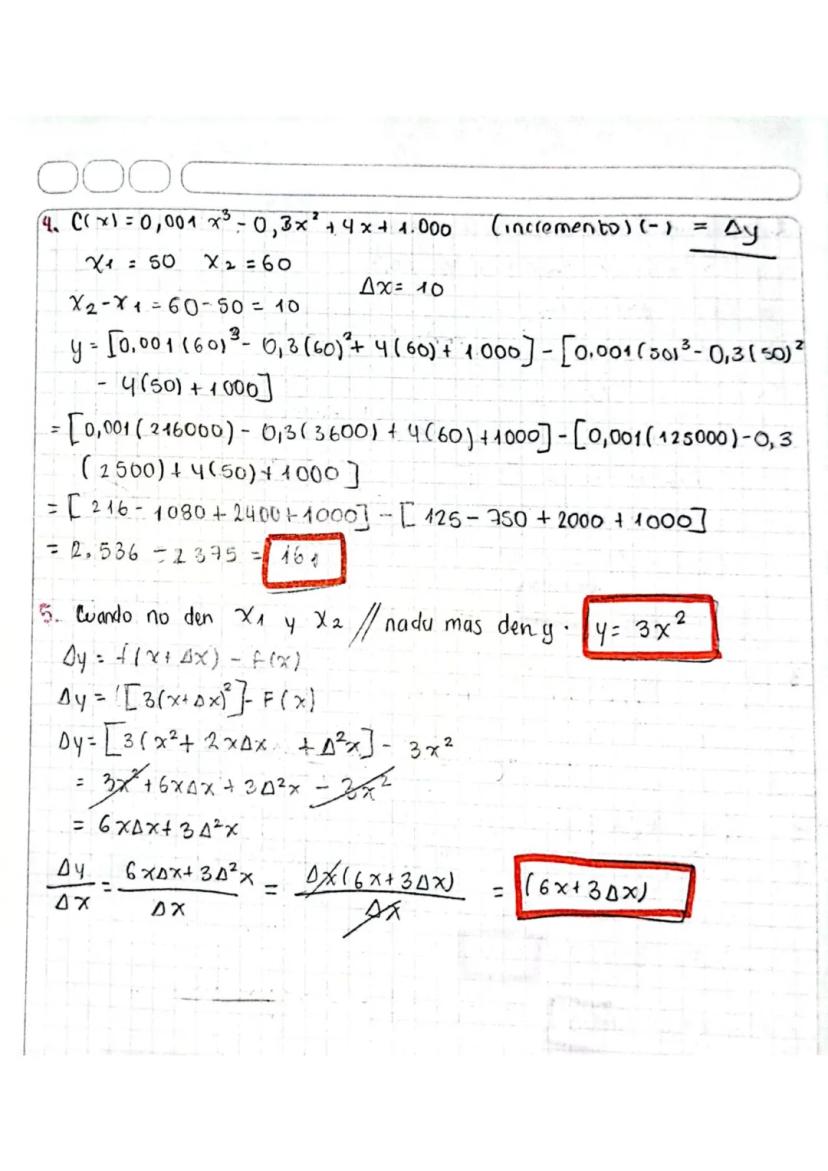 4. C(x) = 0,001 x³ - 0,3x² + 4x + 1.000 (incremento) (-) = Δy
x1 = 50 x2 = 60
Δx = 10
x2 - x1 = 60 - 50 = 10
y = [0,001 (60)³ - 0,3(60)² + 4(60) + 1.000] - [0,001(50)³ - 0,3(50)²
- 4(50) + 1000]
= [0,001(216000) - 0,3(3600) + 4(60) + 1000] - [0,001(125000) - 0,3
(2500) + 4(50) + 1000]
= [216 - 1080 + 2400 + 1000] - [125 - 750 + 2000 + 1000]
= 2.536 - 2375 = 161
5. Cuando no den x1 y x2 // nadu mas den y. y = 3x²
Δy = f(x + Δx) - f(x)
Δy = [3(x+Δx)²] - F(x)
Δy = [3(x² + 2xΔx + Δ²x] - 3x²
= 3x² + 6xΔx + 3Δ²x - 3x²
= 6xΔx + 3Δ²x
Δy/Δx = 6xΔx + 3Δ²x/Δx = Δx(6x + 3Δx)/Δx = (6x + 3Δx)